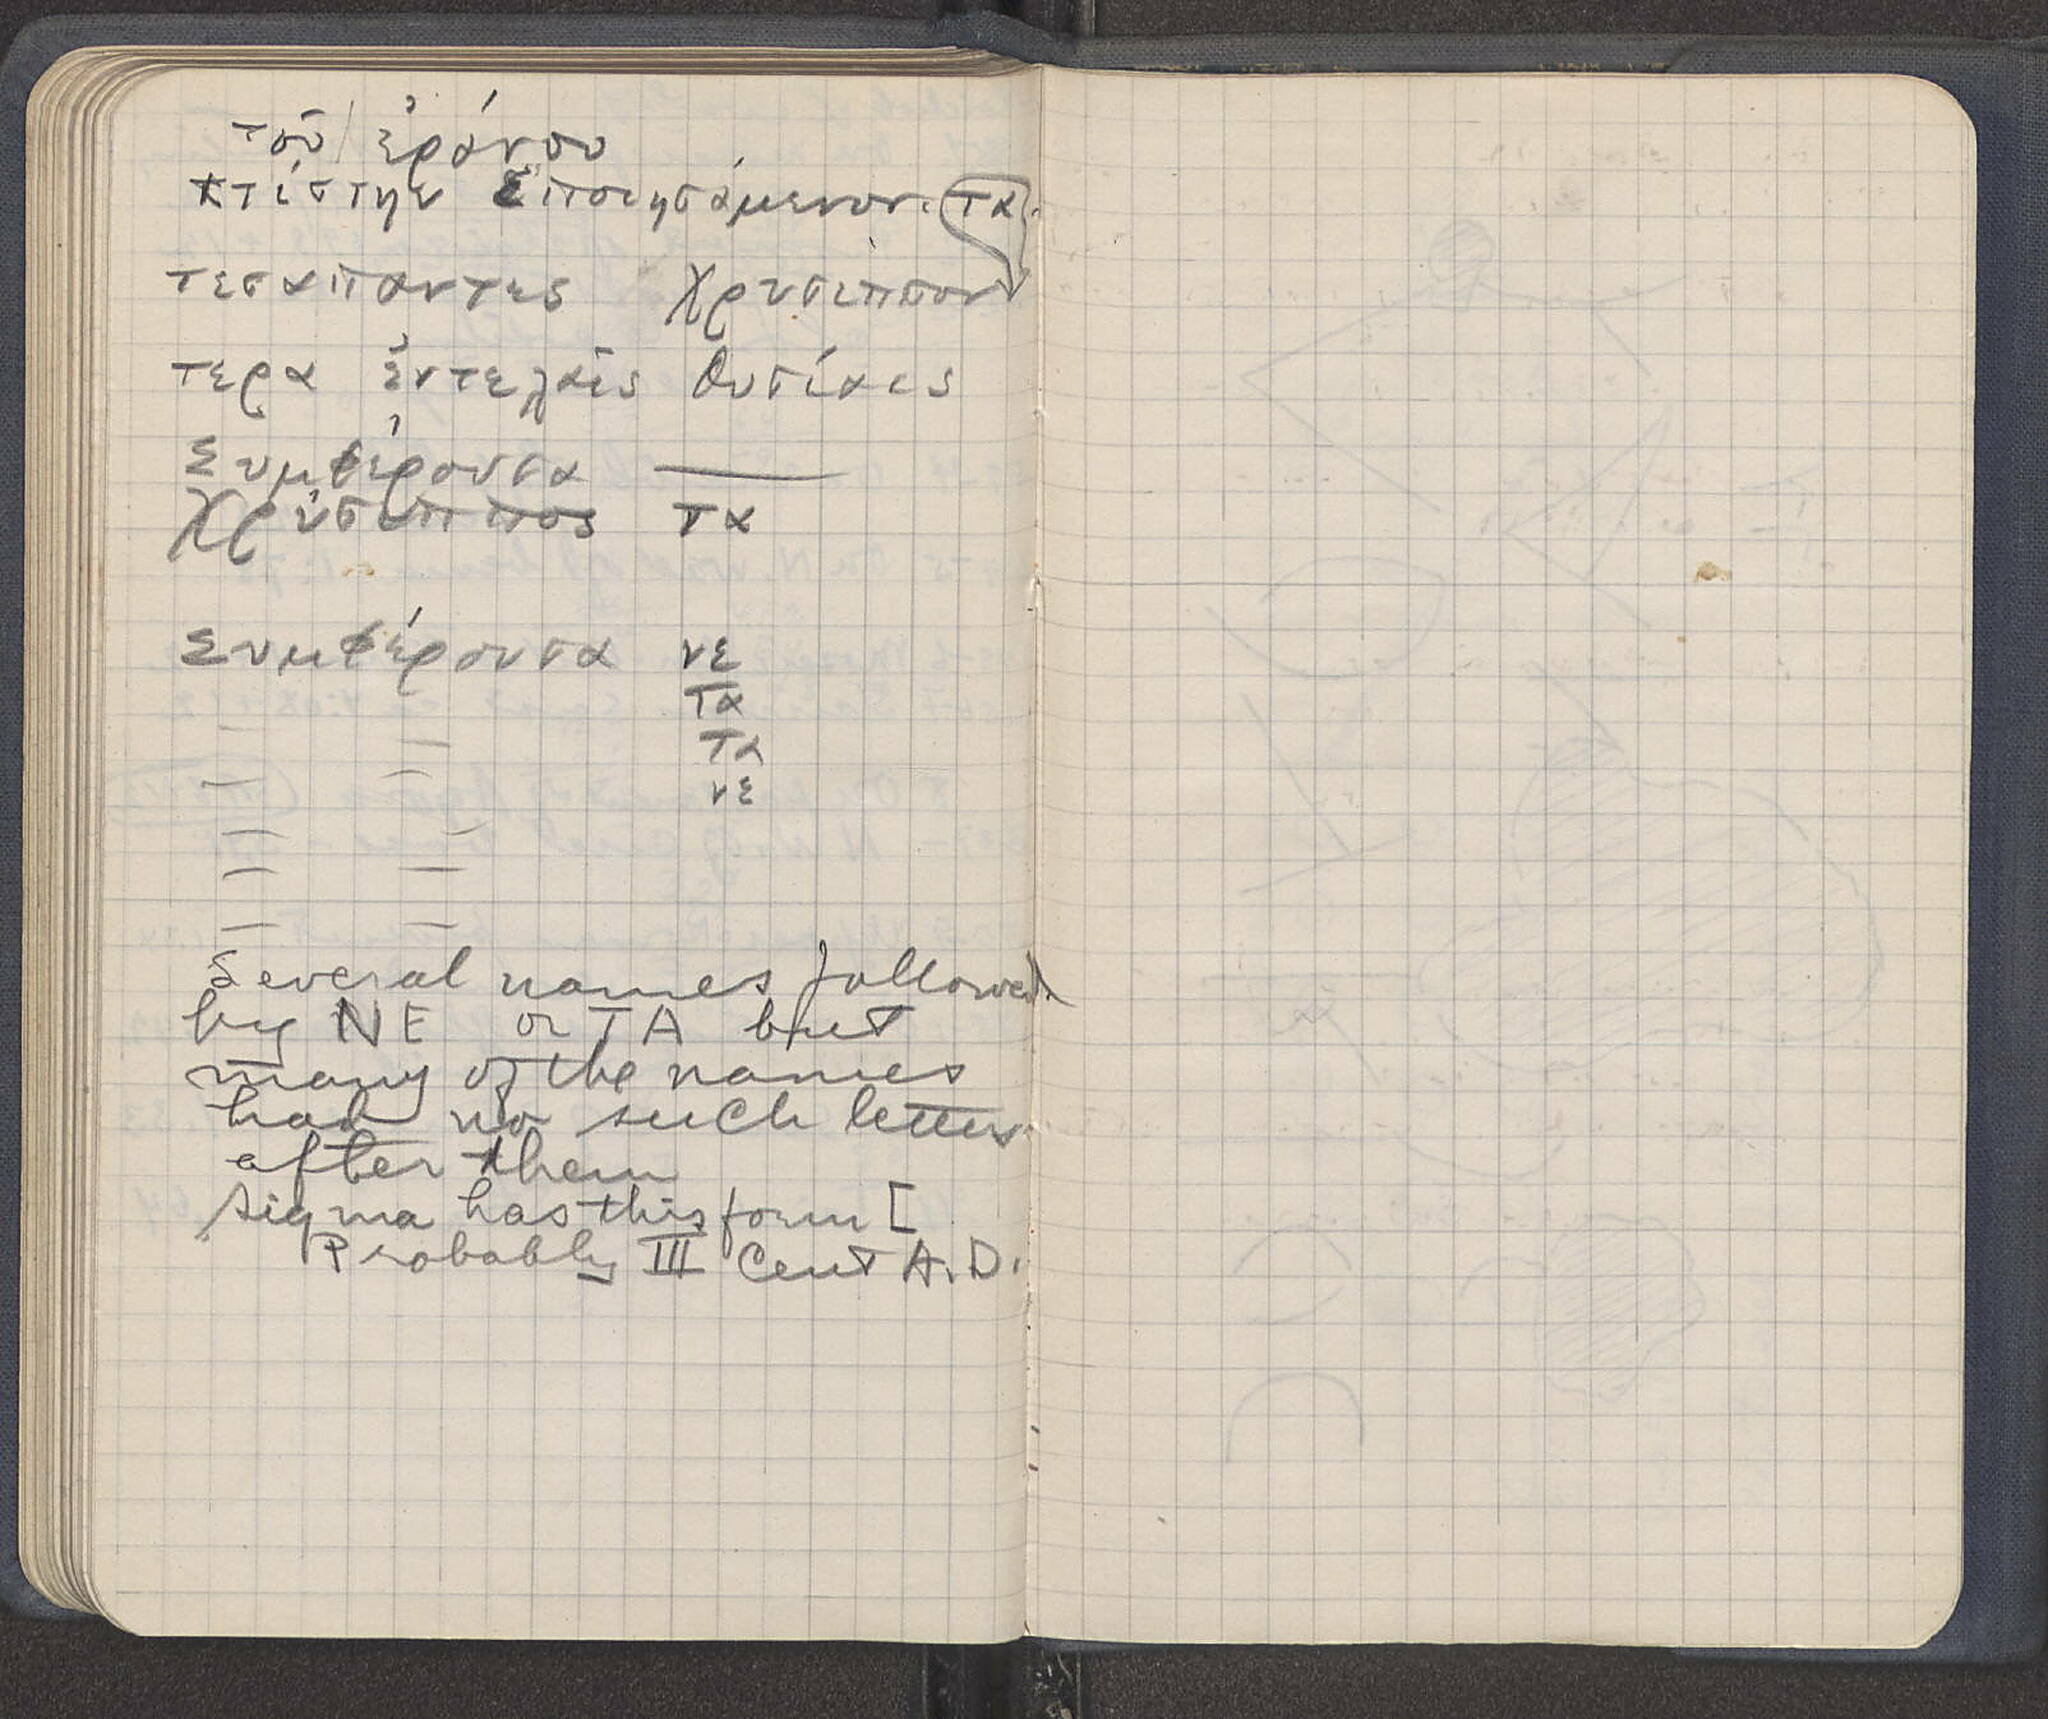 τοῦ ἐράνου
κτίστην ἐποιησάμενον. τα
τεσαπαντες Χρυσιππον
τερα ἐντελαῖς θυσίαις
Συμφέρουσα —
Χρύσιππος τα
Συμφέρουσα νε
τα
— — τα
— — νε
— —
— —
— —
Several names followed
by NE or TA but
many of the names
had no such letters
after them
Sigma has this form [
Probably III Cent A.D.